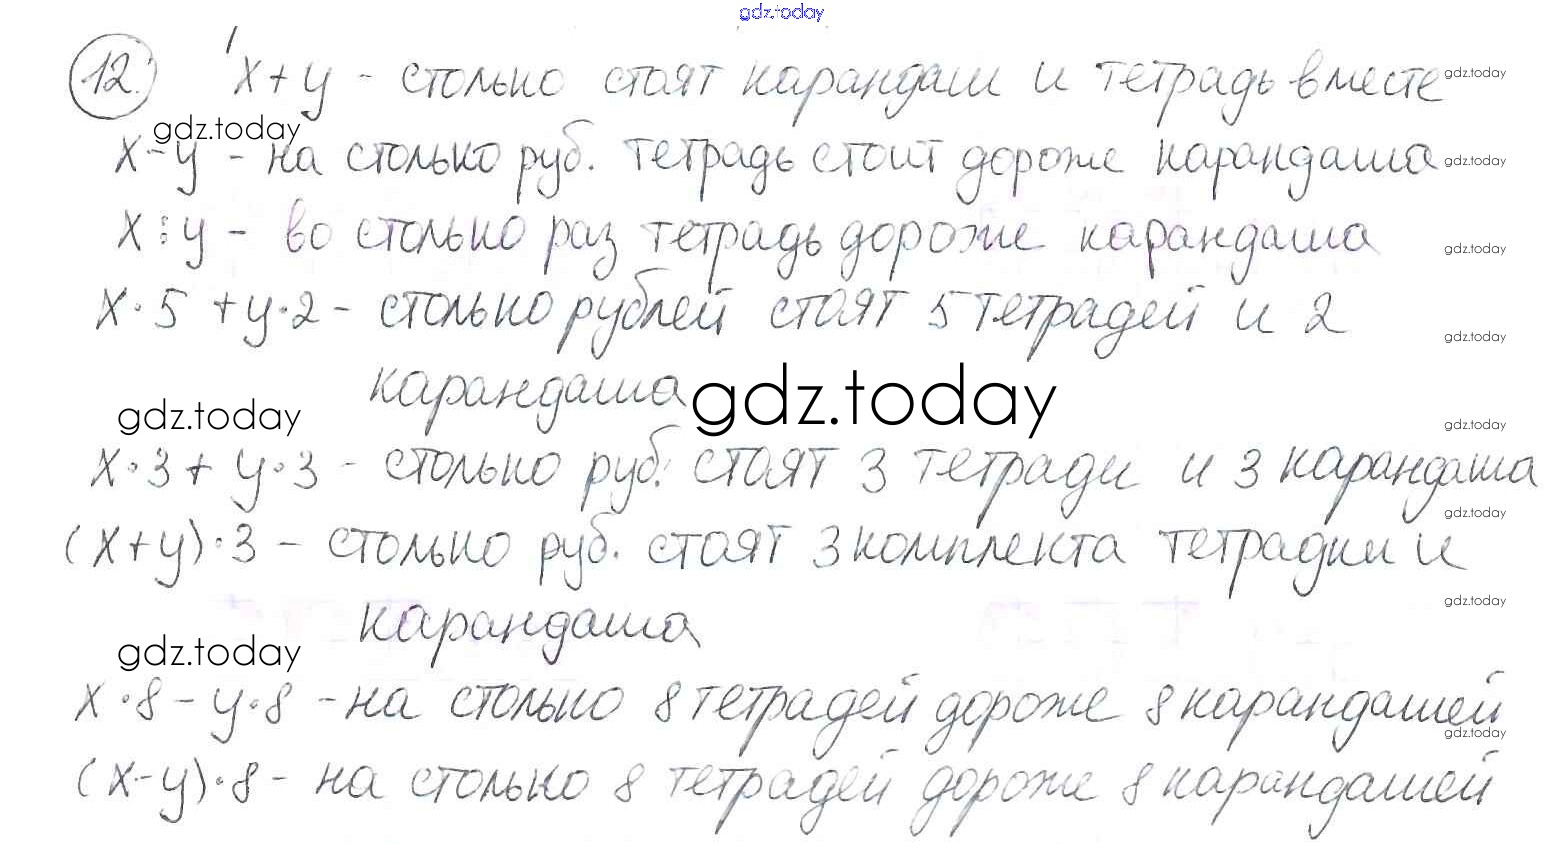 gdz.today
12. x+y - столько стоят карандаш и тетрадь вместе gdz.today
gdz.today
x-y - на столько руб. тетрадь стоит дороже карандаша gdz.today
x:y - во столько раз тетрадь дороже карандаша gdz.today
x·5 +y·2 - столько рублей стоят 5 тетрадей и 2 gdz.today
карандаша gdz.today
gdz.today gdz.today
x·3+ y·3 - столько руб. стоят 3 тетради и 3 карандаша
gdz.today
(x+y)·3 - столько руб. стоят 3 комплекта тетрадки и
gdz.today
карандаша
gdz.today
x·8-y·8 - на столько 8 тетрадей дороже 8 карандашей
gdz.today
(x-y)·8 - на столько 8 тетрадей дороже 8 карандашей